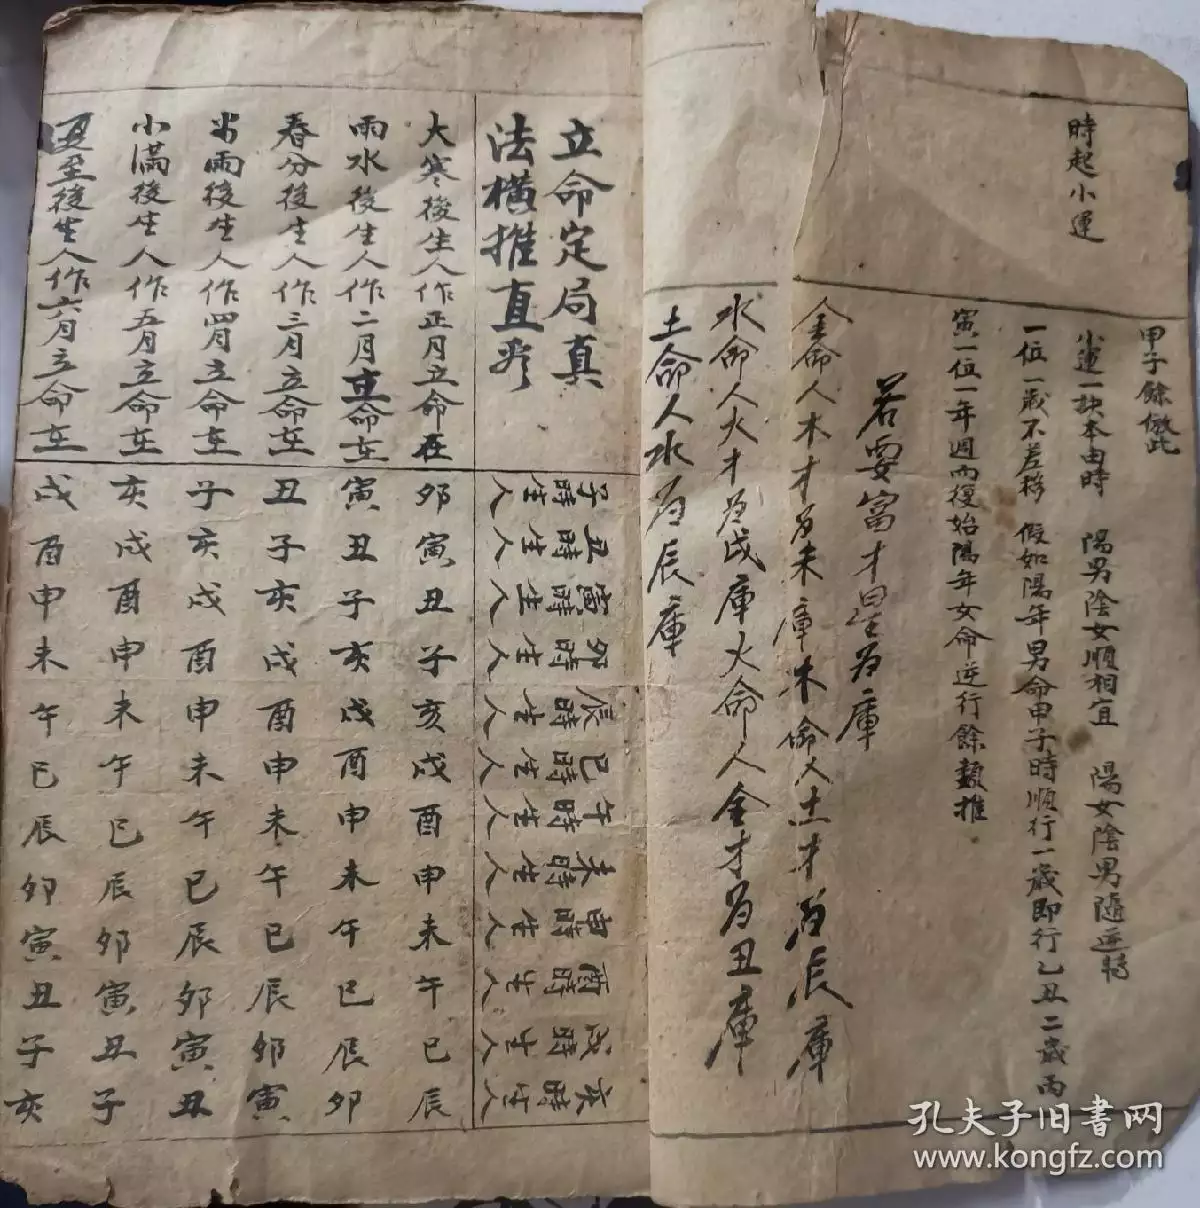 時起小運
甲子餘倣此
小運一訣本由時 陽男陰女順相宜 陽女陰男隨逆轉
一位一歲不差移 假如陽年男命甲子時順行一歲即行乙丑二歲丙
寅一位一年週而復始陽年女命逆行餘類推
若要富才星為庫
金命人木才為未庫木命人土才為辰庫
水命人火才為戌庫火命人金才為丑庫
土命人水為辰庫
立命定局真
法橫推直
子時生人
丑時生人
寅時生人
卯時生人
辰時生人
巳時生人
午時生人
未時生人
申時生人
酉時生人
戌時生人
亥時生人
大寒後生人作正月立命在 卯寅丑子亥戌酉申未午巳辰
雨水後生人作二月立命在 寅丑子亥戌酉申未午巳辰卯
春分後生人作三月立命在 丑子亥戌酉申未午巳辰卯寅
雨後生人作四月立命在 子亥戌酉申未午巳辰卯寅丑
小滿後生人作五月立命在 亥戌酉申未午巳辰卯寅丑子
夏至後生人作六月立命在 戌酉申未午巳辰卯寅丑子亥
孔夫子旧书网
www.kongfz.com